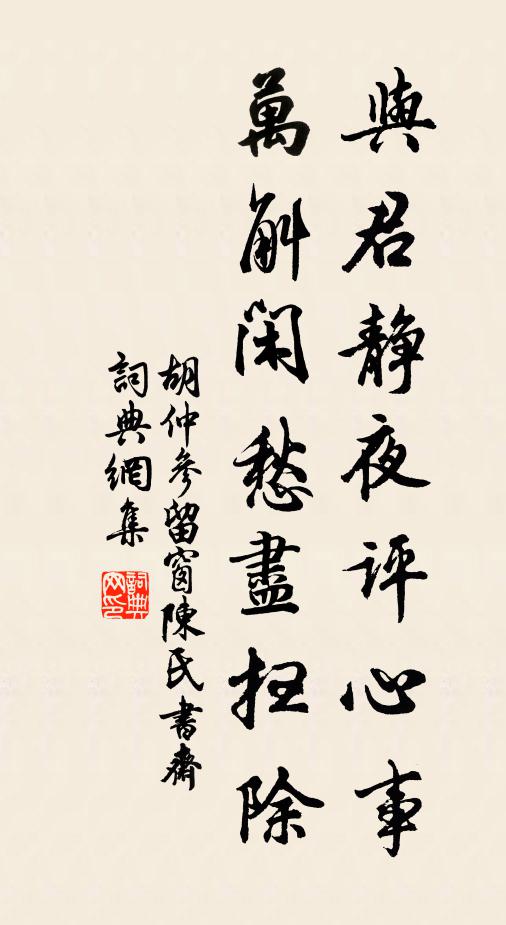 與君静夜評心事
萬斛閑愁盡扫除
胡仲參留窗陳氏書齋
詞典網集
詞典
网印